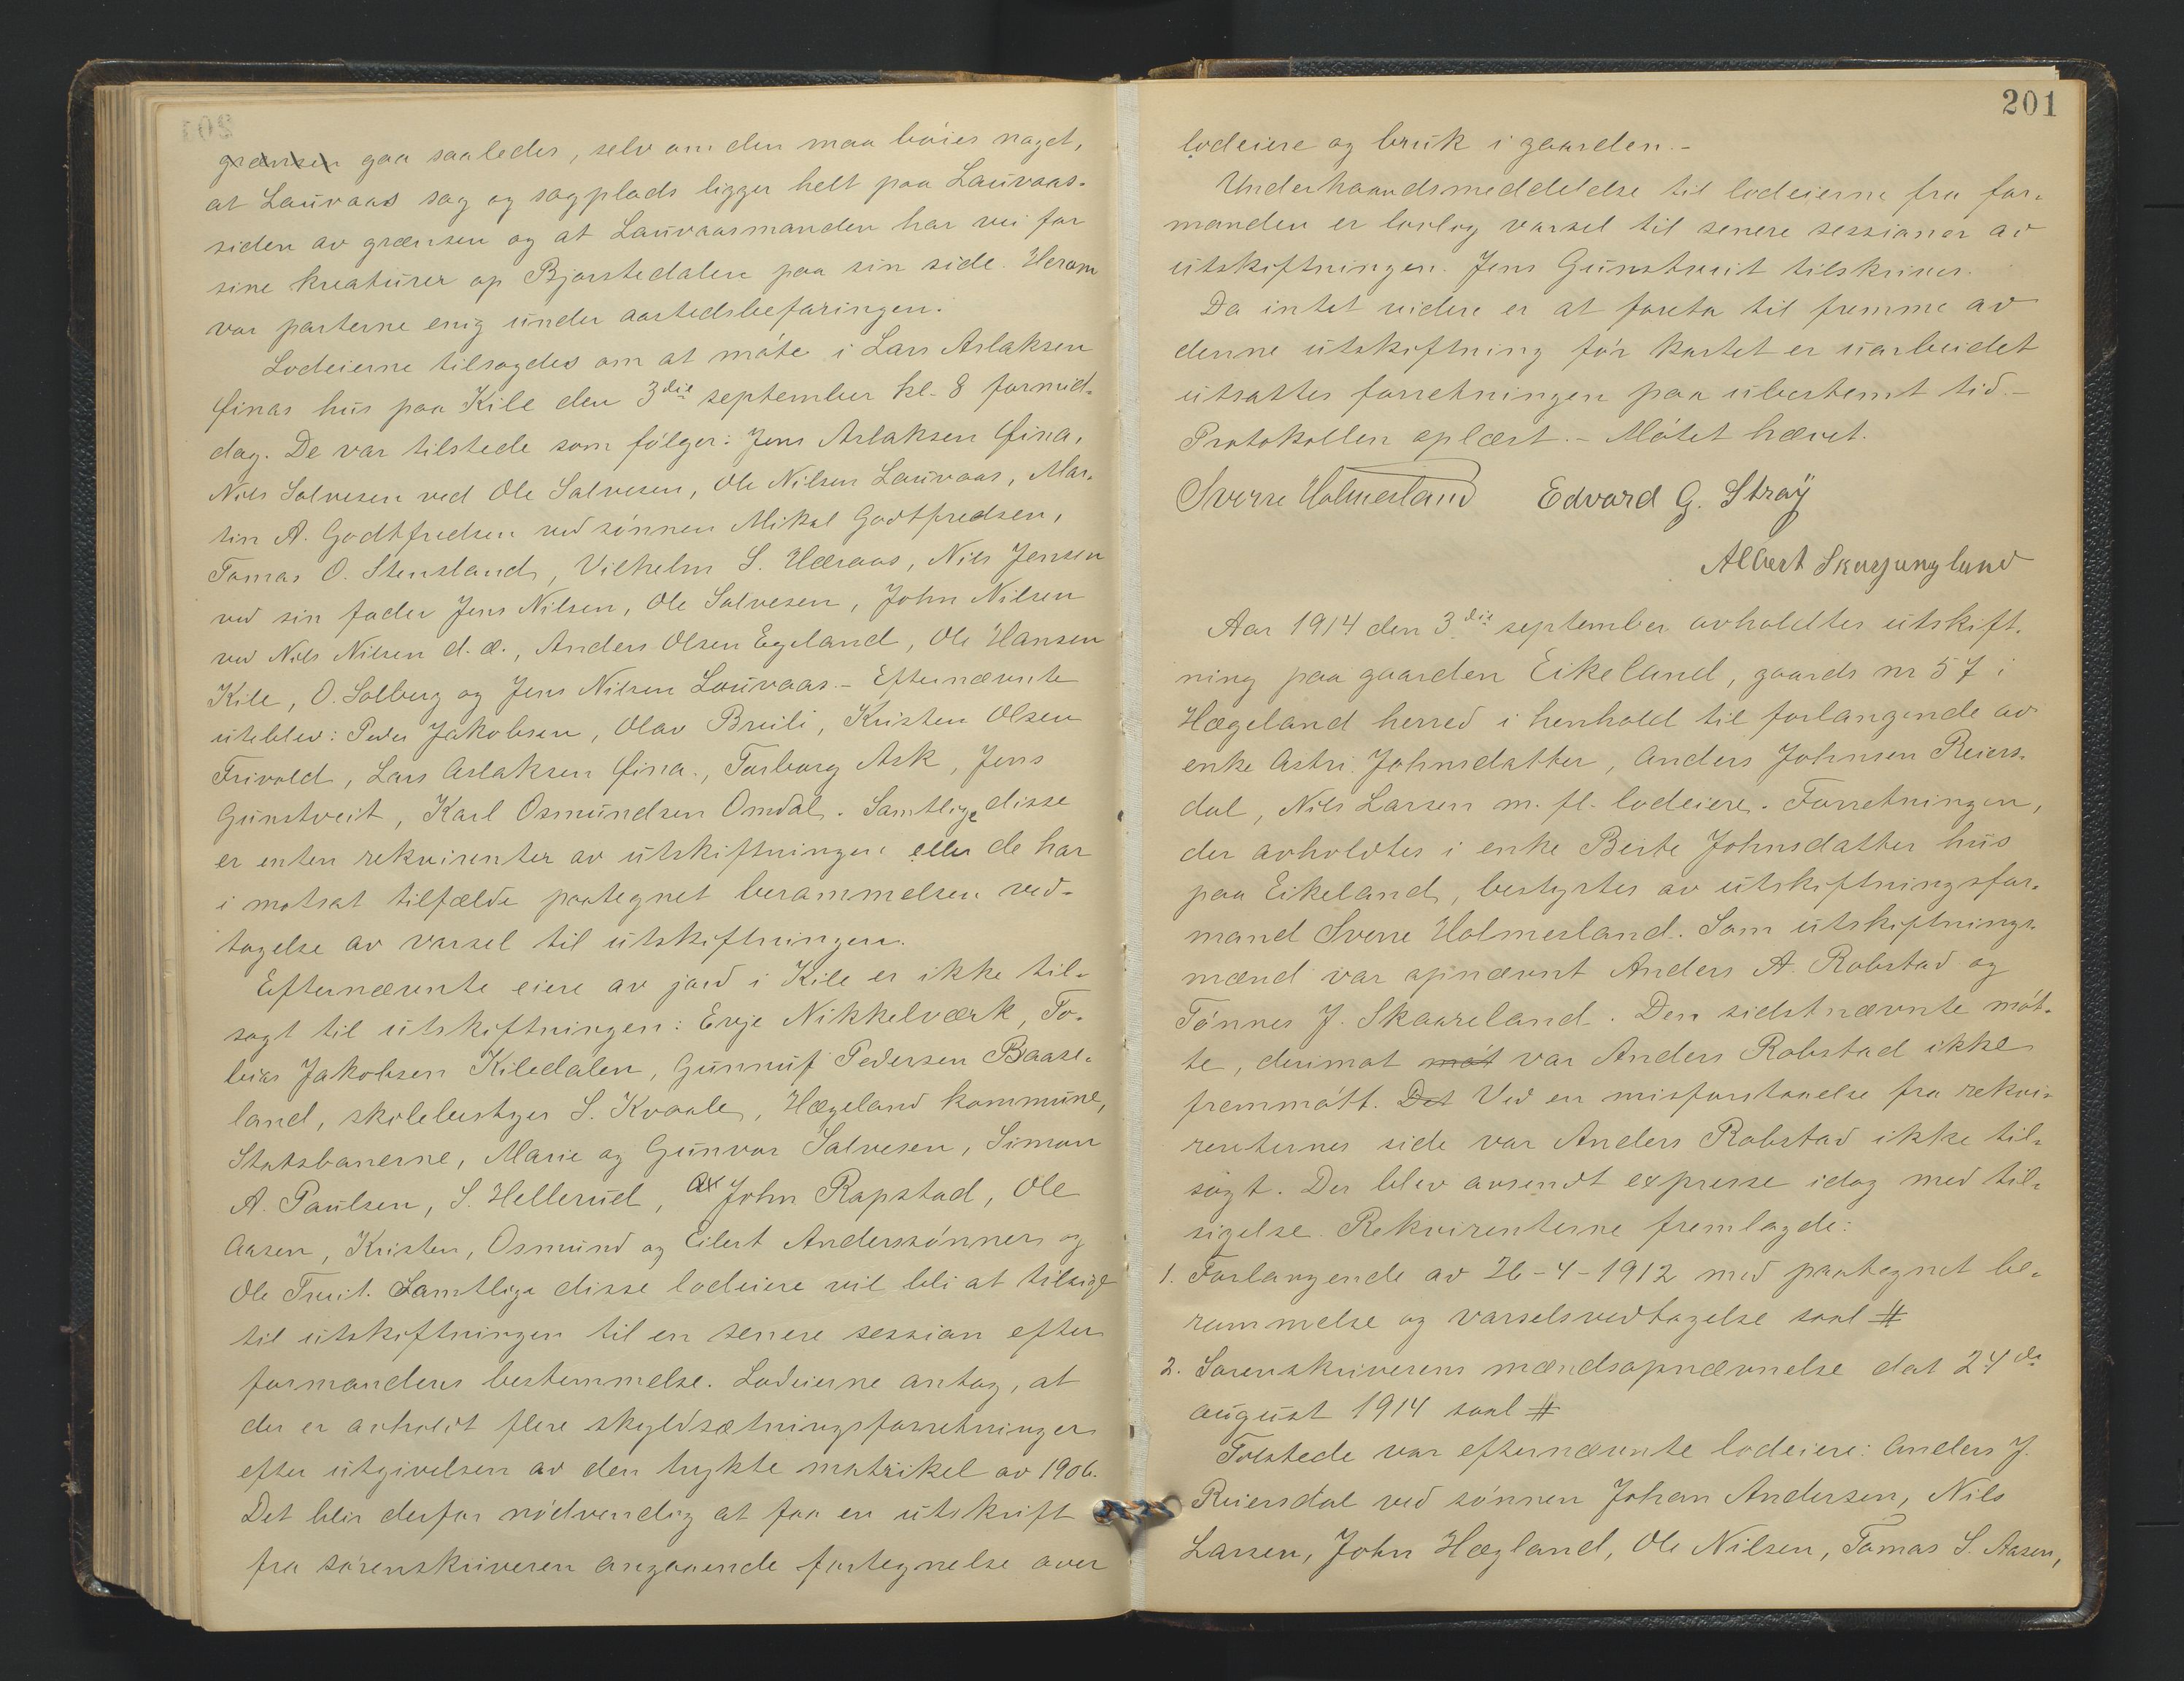 grænsen gaa saaledes, selv om den maa bøies noget,
at Lauvaas sag og sagplads ligger helt paa Lauvaas-
siden av grænsen og at Lauvaasmanden har vei for
sine kreaturer op Bjorstedalen paa sin side. Herom
var parterne enig under aastedsbefaringen.
Lodeierne tilsagdes om at møte i Lars Aslaksen
Finas hus paa Kile den 3die september kl. 8 formid-
dag. De var tilstede som følger: Jens Aslaksen Fina,
Nils Salvesen ved Ole Salvesen, Ole Nilsen Lauvaas, Mar-
tin A. Godtfredsen ved sønnen Mikal Godtfredsen,
Tomas O. Stensland, Vilhelm S. Hæraas, Nils Jensen
ved sin fader Jens Nilsen, Ole Salvesen, John Nilsen
ved Nils Nilsen d. æ., Anders Olsen Egeland, Ole Hansen
Kile, O. Solberg og Jens Nilsen Louvaas.- Efternævnte
uteblev: Peder Jakobsen, Olav Breili, Kristen Olsen
Frivold, Lars Aslaksen Fina., Torborg Ask, Jens
Gunstveit, Karl Osmundsen Omdal. Samtlige disse
er enten rekvirenter av utskiftningen eller de har
i motsat tilfælde paategnet berammelsen ved-
tagelse av varsel til utskiftningen.
Efternævnte eiere av jord i Kile er ikke til-
sagt til utskiftningen: Evje Nikkelværk, To-
bias Jakobsen Kiledalen, Gunnuf Pedersen Baase-
land, skolebestyrer S. Kvaale, Hægeland kommune,
Statsbanerne, Marie og Gunvor Salvesen, Simon
A. Paulsen, S. Hellerud, John Rapstad, Ole
Aasen, Kristen, Osmund og Eilert Anderssønner og
Ole Tveit. Samtlige disse lodeiere vil bli at tilsige
til utskiftningen til en senere session efter
formandens bestemmelse. Lodeierne antog, at
der er avholdt flere skyldsætningsforretninger
efter utgivelsen av den trykte matrikel av 1906.
Det blir derfor nødvendig at faa en utskrift
fra sørenskriveren angaaende fortegnelse over
201
lodeiere og bruk i gaarden.-
Underhaandsmeddelelse til lodeierne fra for-
manden er lovlog varsel til senere sessioner av
utskiftningen. Jens Gunstveit tilskrives.
Da intet videre er at foreta til fremme av
denne utskiftning før kartet er uarbeidet
utsattes forretningen paa ubestemt tid.-
Protokollen oplæst.- Møtet hævet.
Sverre Holmesland Edvard G. Strøy
Albert Skarpengland
Aar 1914 den 3die september avholdtes utskift-
ning paa gaarden Eikeland, gaards nr 57 i
Hægeland herred i henhold til forlangende av
enke Astri Johnsdatter, Anders Johnsen Reiers-
dal, Nils Larsen m. fl. lodeiere. Forretningen,
der avholdtes i enke Berte Johnsdatter hus
paa Eikeland, bestyrtes av utskiftningsfor-
mand Sverre Holmesland. Som utskiftnings-
mænd var opnævnt Anders A. Robstad og
Tønnes J. Skaareland. Den sidstnævnte møt-
te, derimot møt var Anders Robstad ikke
fremmøtt. Det Ved en misforstaaelse fra rekvi-
renternes side var Anders Robstad ikke til-
sagt. Der blev avsendt expresse idag med til-
sigelse. Rekvirenterne fremlagde:
1. Forlangende av 26-4-1912 med paategnet be-
rammelse og varselsvedtagelse saal #
2. Sorenskriverens mændsopnævnelse dat 24de
august 1914 saal #
Tilstede var efternævnte lodeiere: Anders J.
Reiersdal ved sønnen Johan Andersen, Nils
Larsen, John Hægland, Ole Nilsen, Tomas S. Aasen,